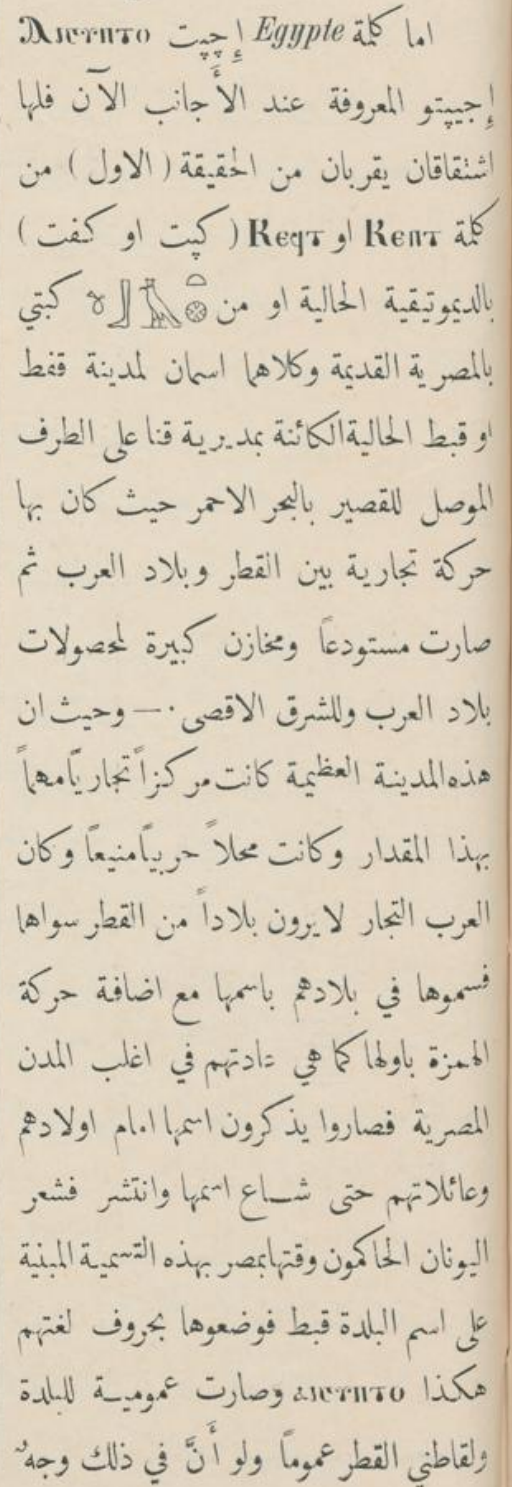 اما كلمة Egypte إجيپت Ⲁⲓⲅⲩⲡⲧⲟ
إجيپتو المعروفة عند الأجانب الآن فلها
اشتقاقان يقربان من الحقيقة ( الاول ) من
كلمة Ⲕⲉⲡⲧ او Ⲕⲉϥⲧ ( كپت او كفت )
بالديموتيقية الحالية او من كبتي
بالمصرية القديمة وكلاهما اسمان لمدينة قفط
او قبط الحالية الكائنة بمديرية قنا على الطرف
الموصل للقصير بالبحر الاحمر حيث كان بها
حركة تجارية بين القطر وبلاد العرب ثم
صارت مستودعاً ومخازن كبيرة لمحصولات
بلاد العرب وللشرق الاقصى ٠ — وحيث ان
هذه المدينة العظيمة كانت مركزاً تجاريّاً مهماً
بهذا المقدار وكانت محلاً حربيّاً منيعاً وكان
العرب التجار لا يرون بلاداً من القطر سواها
فسموها في بلادهم باسمها مع اضافة حركة
الهمزة باولها كما هي عادتهم في اغلب المدن
المصرية فصاروا يذكرون اسمها امام اولادهم
وعائلاتهم حتى شاع اسمها وانتشر فشعر
اليونان الحاكمون وقتها بمصر بهذه التسمية المبنية
على اسم البلدة قبط فوضعوها بحروف لغتهم
هكذا ⲁⲓⲅⲩⲡⲧⲟ وصارت عمومية للبلدة
ولقاطني القطر عموماً ولو أنَّ في ذلك وجهٌ